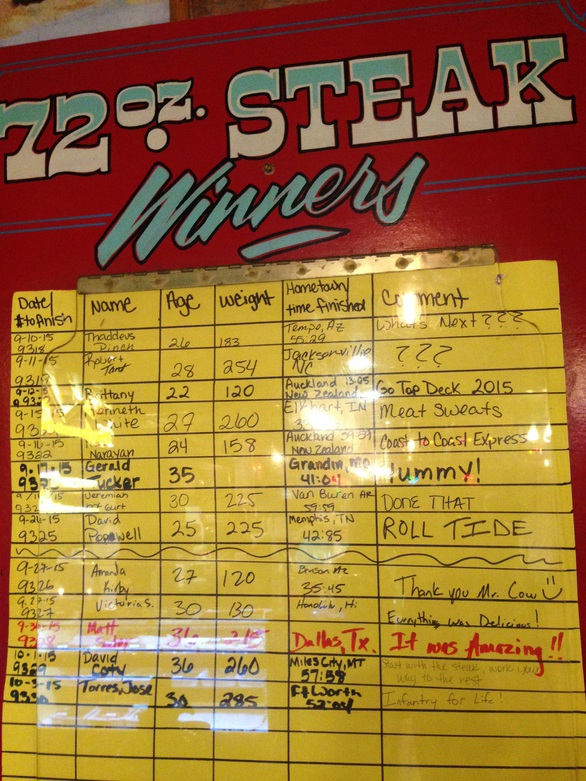 72 oz. STEAK
Winners
Date/ Name Age weight Hometown/ Comment
# to finish time finished
9-10-15 Thaddeus 26 183 Tempe, Az What's Next???
9318 55:29
9-11-15 Robert 28 254 Jacksonville ???
9319 NC
9-12-15 Brittany 22 120 Auckland 13:05 Go Top Deck 2015
New Zealand
9-15-15 27 260 Elkhart, IN Meat Sweats
9-16-15 24 158 Auckland Coast to Coast Express
9322 Narayan New Zealand
9-17-15 Gerald 35 Grandin, mo Yummy!
Tucker 41:04
Jeremiah 30 225 Van Buren AR DONE THAT
59:59
9-24-15 David 25 225 Memphis, TN ROLL TIDE
9325 42:85
9-27-15 Amanda 27 120 Thank you Mr. Cow
9326 Kirby 35:45
9-27-15 Victoria S. 30 130 Honolulu, Hi Everything was Delicious!
9327
9-30-15 Matt 215 Dallas, Tx. It was Amazing!!
10-1-15 David 36 260 Miles City, MT Start with the steak, work your
9329 Coty 57:58 way to the rest
Torres, Jose 30 285 Ft Worth Infantry for Life!
9330 52:04